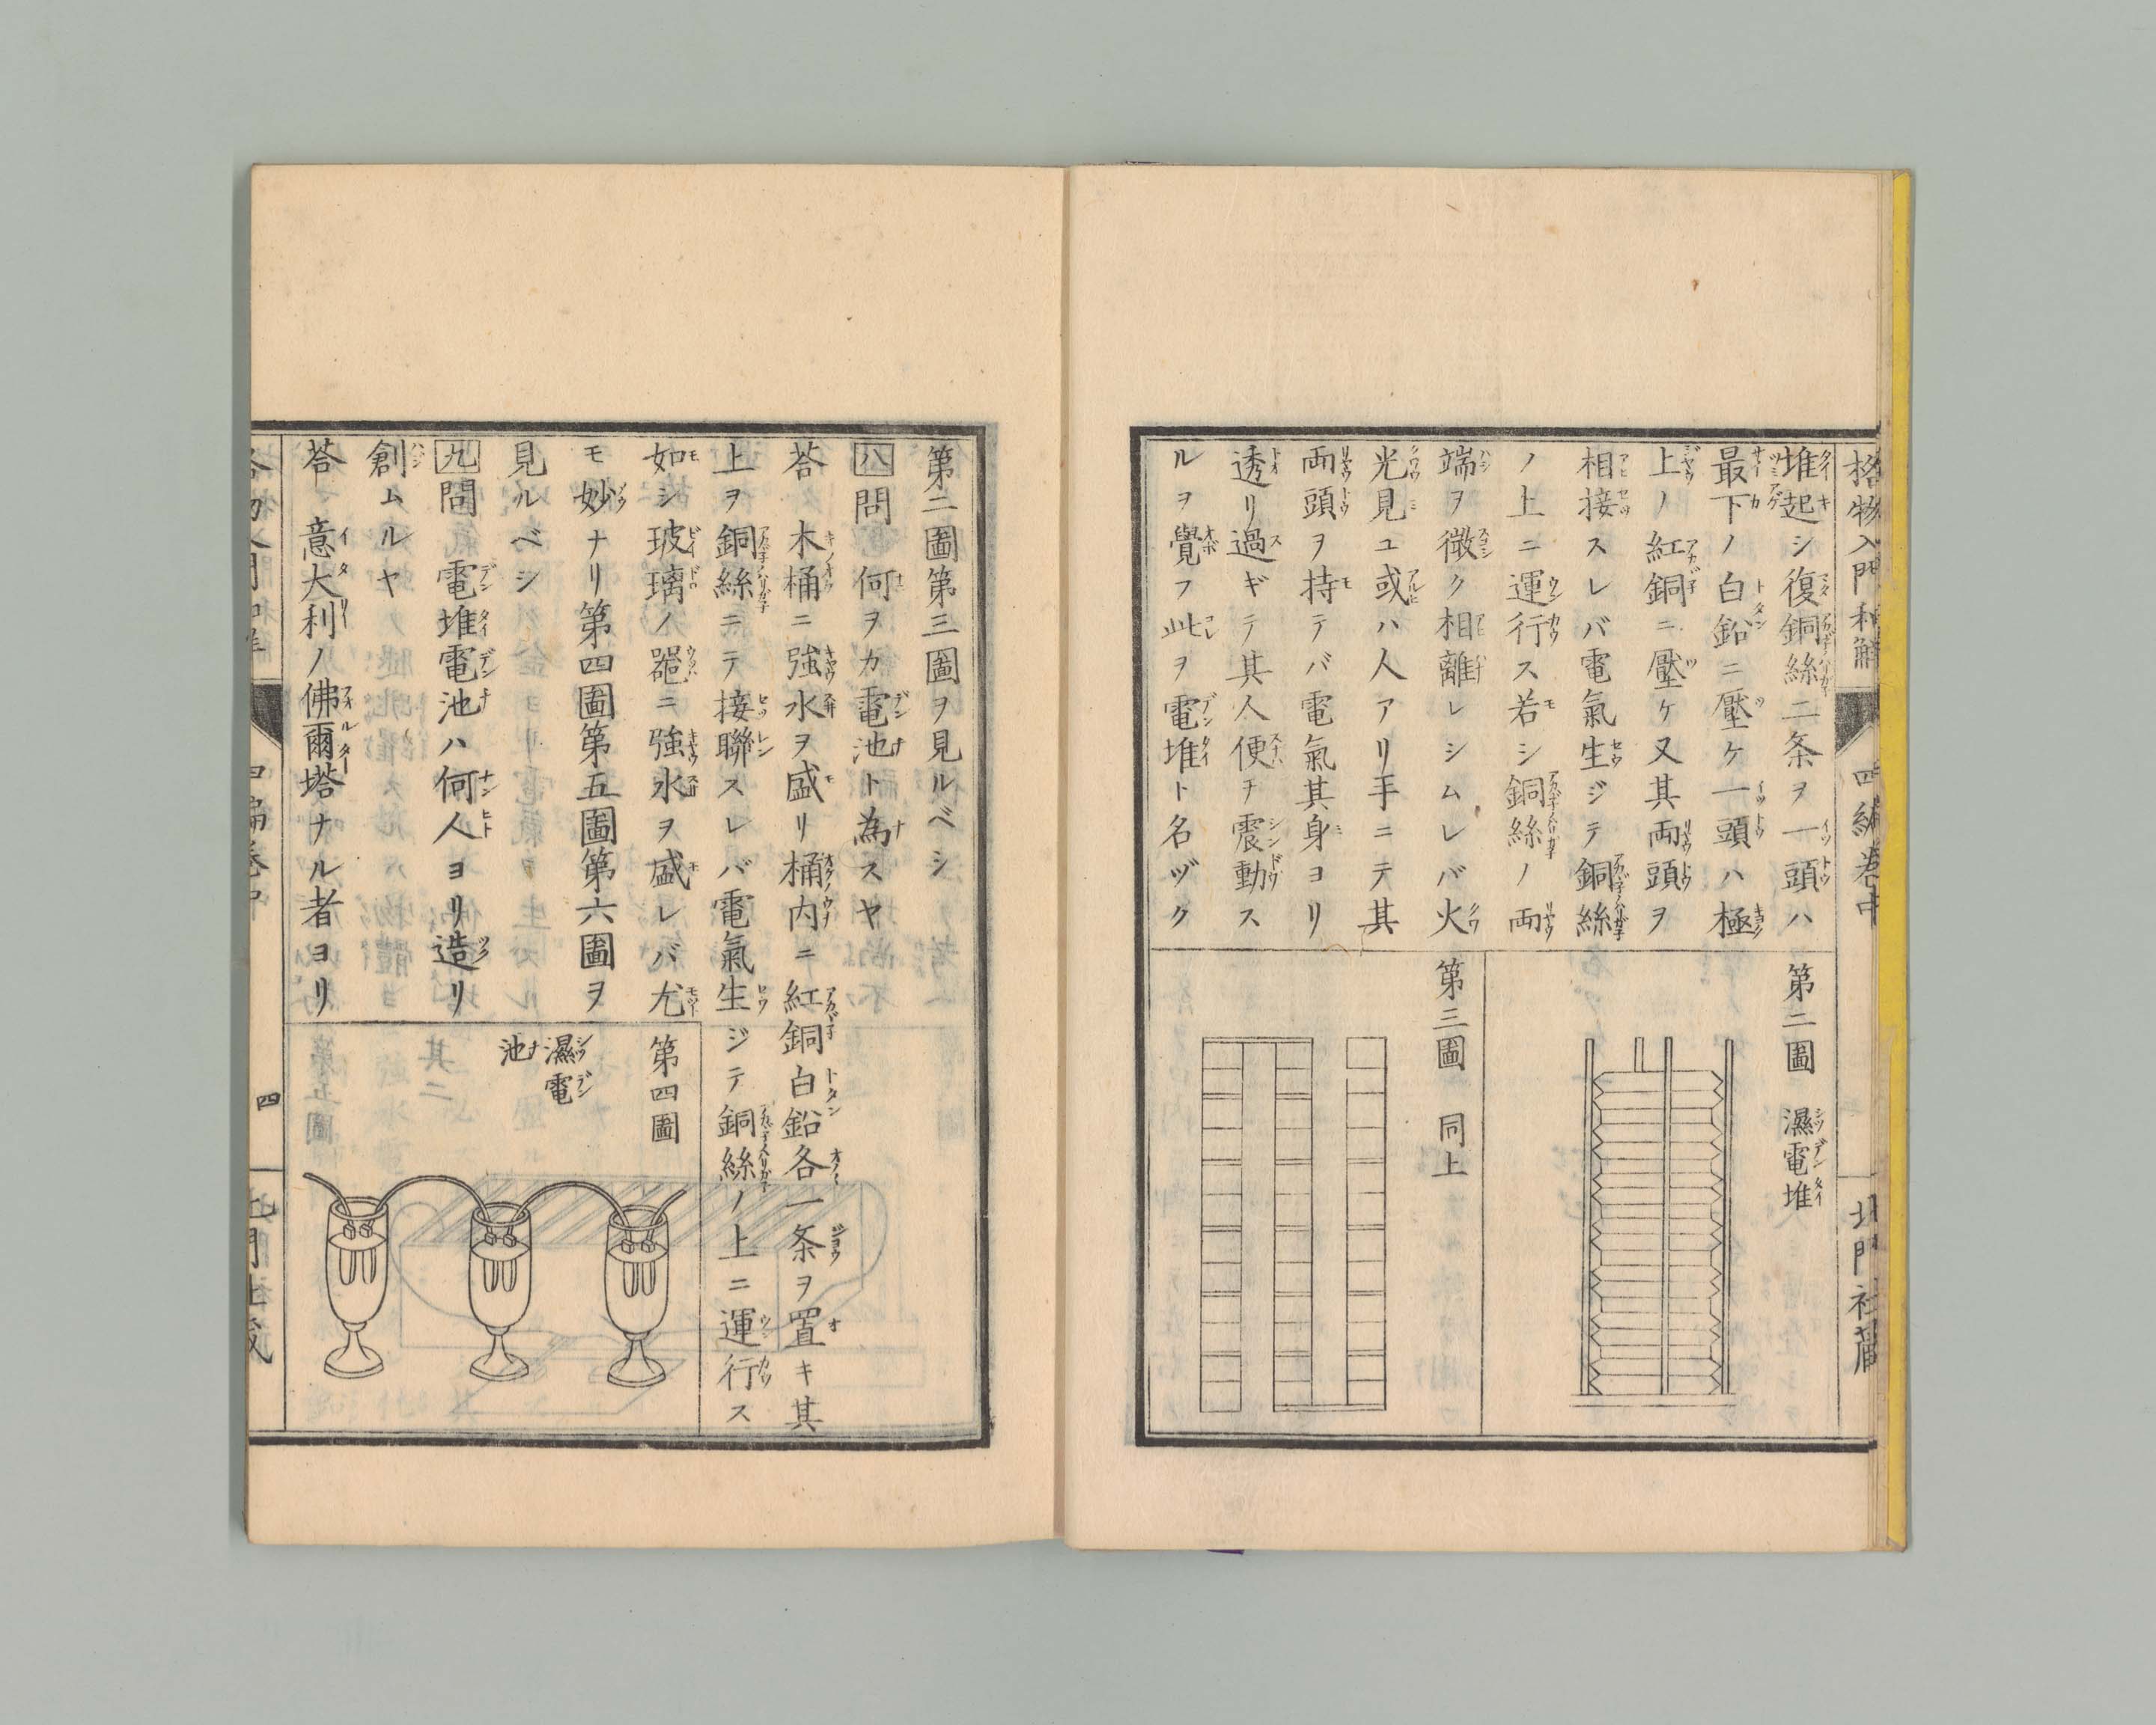 格物入門和解 四編巻中 北門社蔵
堆起シ復銅絲二条ヲ一頭ハ
最下ノ白鉛ニ壓ケ一頭ハ極
上ノ紅銅ニ壓ケ又其両頭ヲ
相接スレバ電氣生ジテ銅絲
ノ上ニ運行ス若シ銅絲ノ両
端ヲ微ク相離レシムレバ火
光見ユ或ハ人アリ手ニテ其
両頭ヲ持テバ電氣其身ヨリ
透リ過ギテ其人便チ震動ス
ルヲ覺フ此ヲ電堆ト名ヅク
第二圖 濕電堆
第三圖 同上
第二圖第三圖ヲ見ルベシ
八問 何ヲカ電池ト為スヤ
荅 木桶ニ強水ヲ盛リ桶内ニ紅銅白鉛各一条ヲ置キ其
上ヲ銅絲ニテ接聯スレバ電氣生ジテ銅絲ノ上ニ運行ス
如シ玻璃ノ噐ニ強水ヲ盛レバ尤
モ妙ナリ第四圖第五圖第六圖ヲ
見ルベシ
九問 電堆電池ハ何人ヨリ造リ
創ムルヤ
荅 意大利ノ佛爾塔ナル者ヨリ
第四圖
濕電
池
四